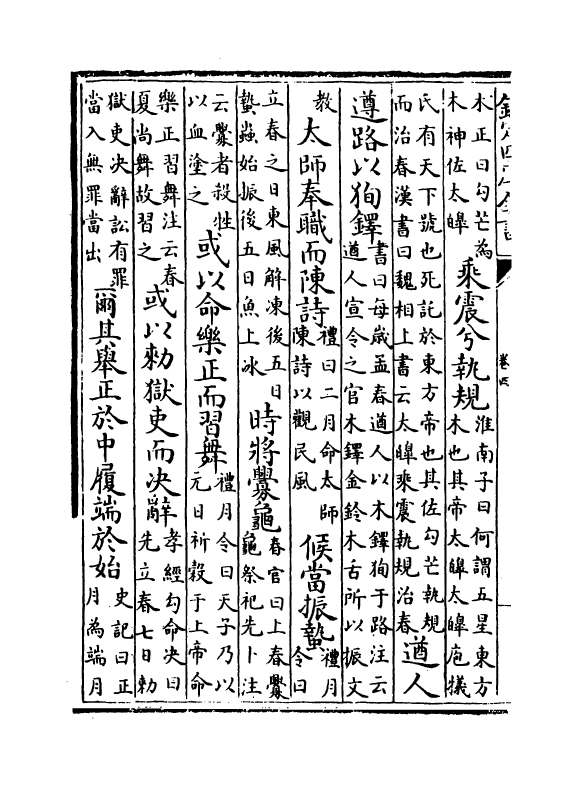 欽定四庫全書
卷四
木正曰勾芒為
木神佐太皞
乘震兮執規
淮南子曰何謂五星東方
木也其帝太皞太皞庖犧
氏有天下號也死託於東方帝也其佐勾芒執規
而治春漢書曰魏相上書云太皞乘震執規治春
遒人
遵路以狥鐸
書曰每歲孟春遒人以木鐸狥于路注云
遒人宣令之官木鐸金鈴木舌所以振文
教
太師奉職而陳詩
禮曰二月命太師
陳詩以觀民風
候當振蟄
禮月
令曰
立春之日東風解凍後五日
蟄蟲始振後五日魚上冰
時將釁龜
春官曰上春釁
龜祭祀先卜注
云釁者殺牲
以血塗之
或以命樂正而習舞
禮月令曰天子乃以
元日祈穀于上帝命
樂正習舞注云春
夏尚舞故習之
或以勑獄吏而决辭
孝經勾命决曰
先立春七日勑
獄吏决辭訟有罪
當入無罪當出
爾其舉正於中履端於始
史記曰正
月為端月